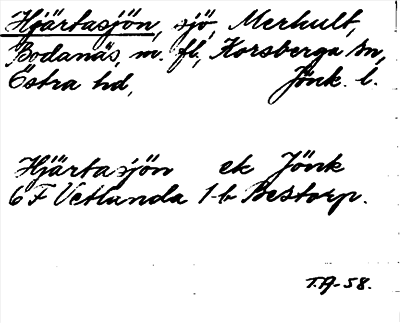 Hjärtasjön, sjö, Merhult,
Bodanäs, m. fl, Korsberga sn,
Östra hd, Jönk. l.
Hjärtasjön ek Jönk
6 F Vetlanda 1-b Bestorp.
T.A-58.